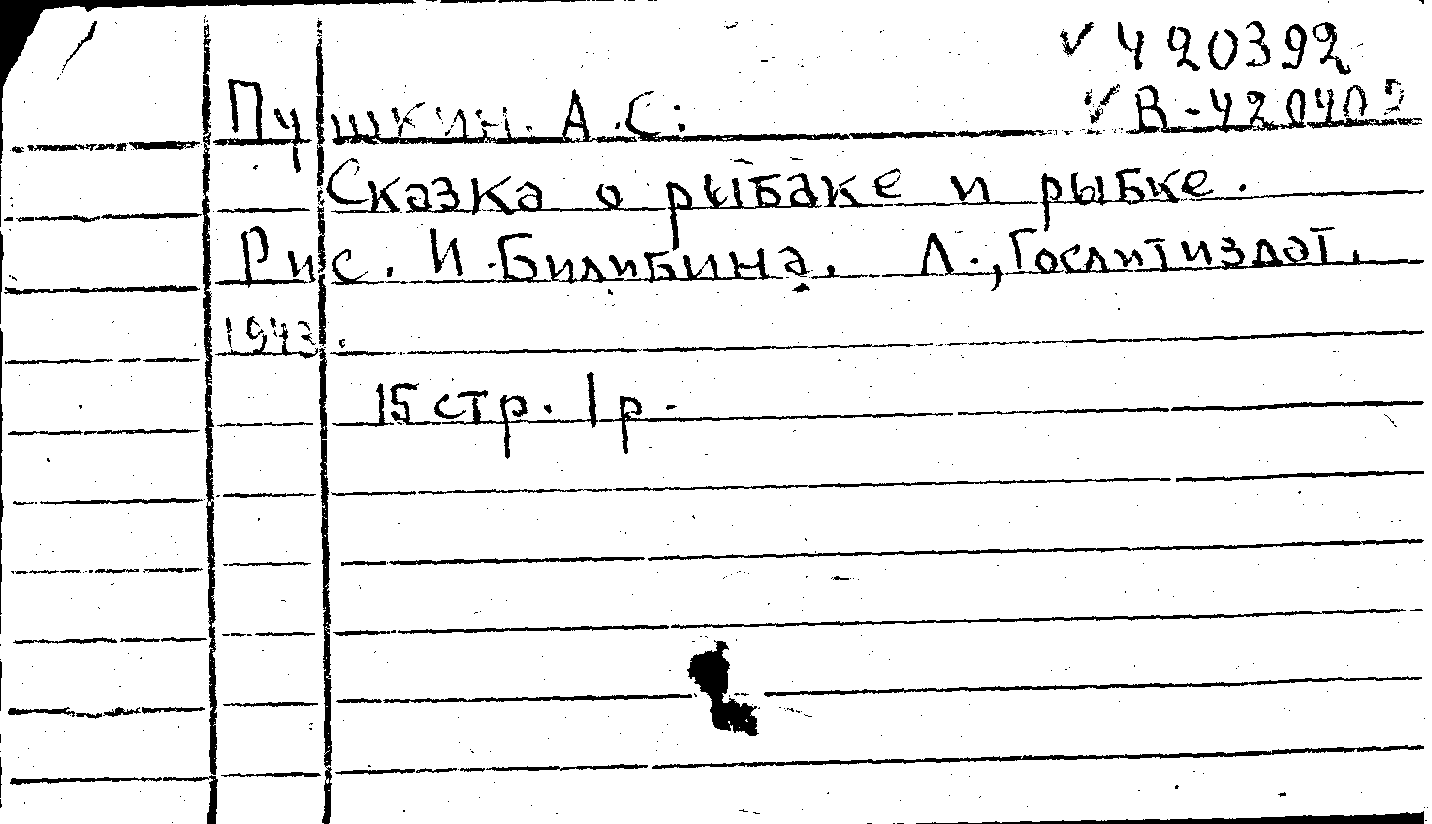 ✓ 420392
Пушкин. А.С: ✓ В-420402
Сказка о рыбаке и рыбке.
Рис. И. Билибина. Л., Гослитиздат.
1943.
15 стр. 1 р.